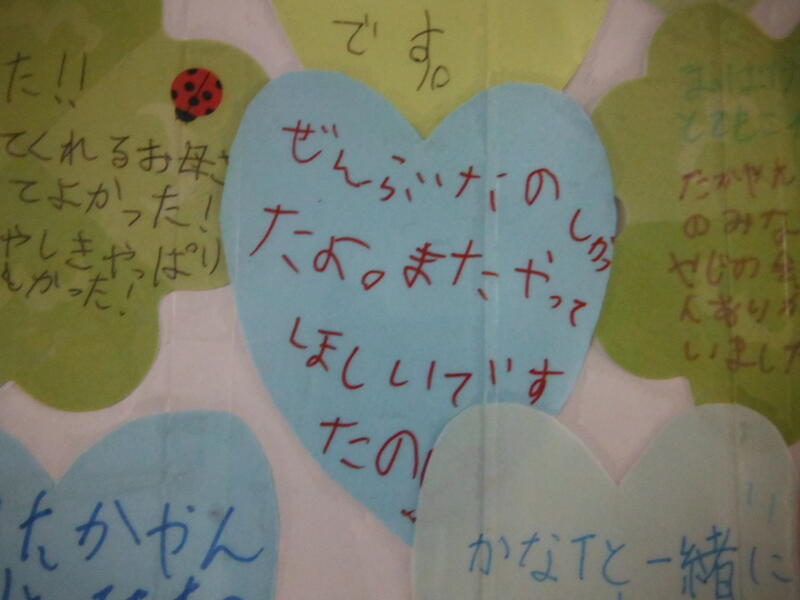 です。
た!!
てくれるお母さ
てよかった!
やしきやっぱり
かった!
ぜんぶたの
しかっ
たよ。またやって
ほしいです
たの
とても
たかやん
のみな
やじの
んありが
いました
たかやん
かなTと一緒に